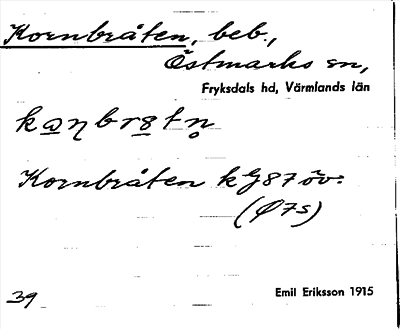 Kornbråten, beb.,
Östmarks sn,
Fryksdals hd, Värmlands län
Kornbråten kG87öv:
(Ø7s)
39
Emil Eriksson 1915